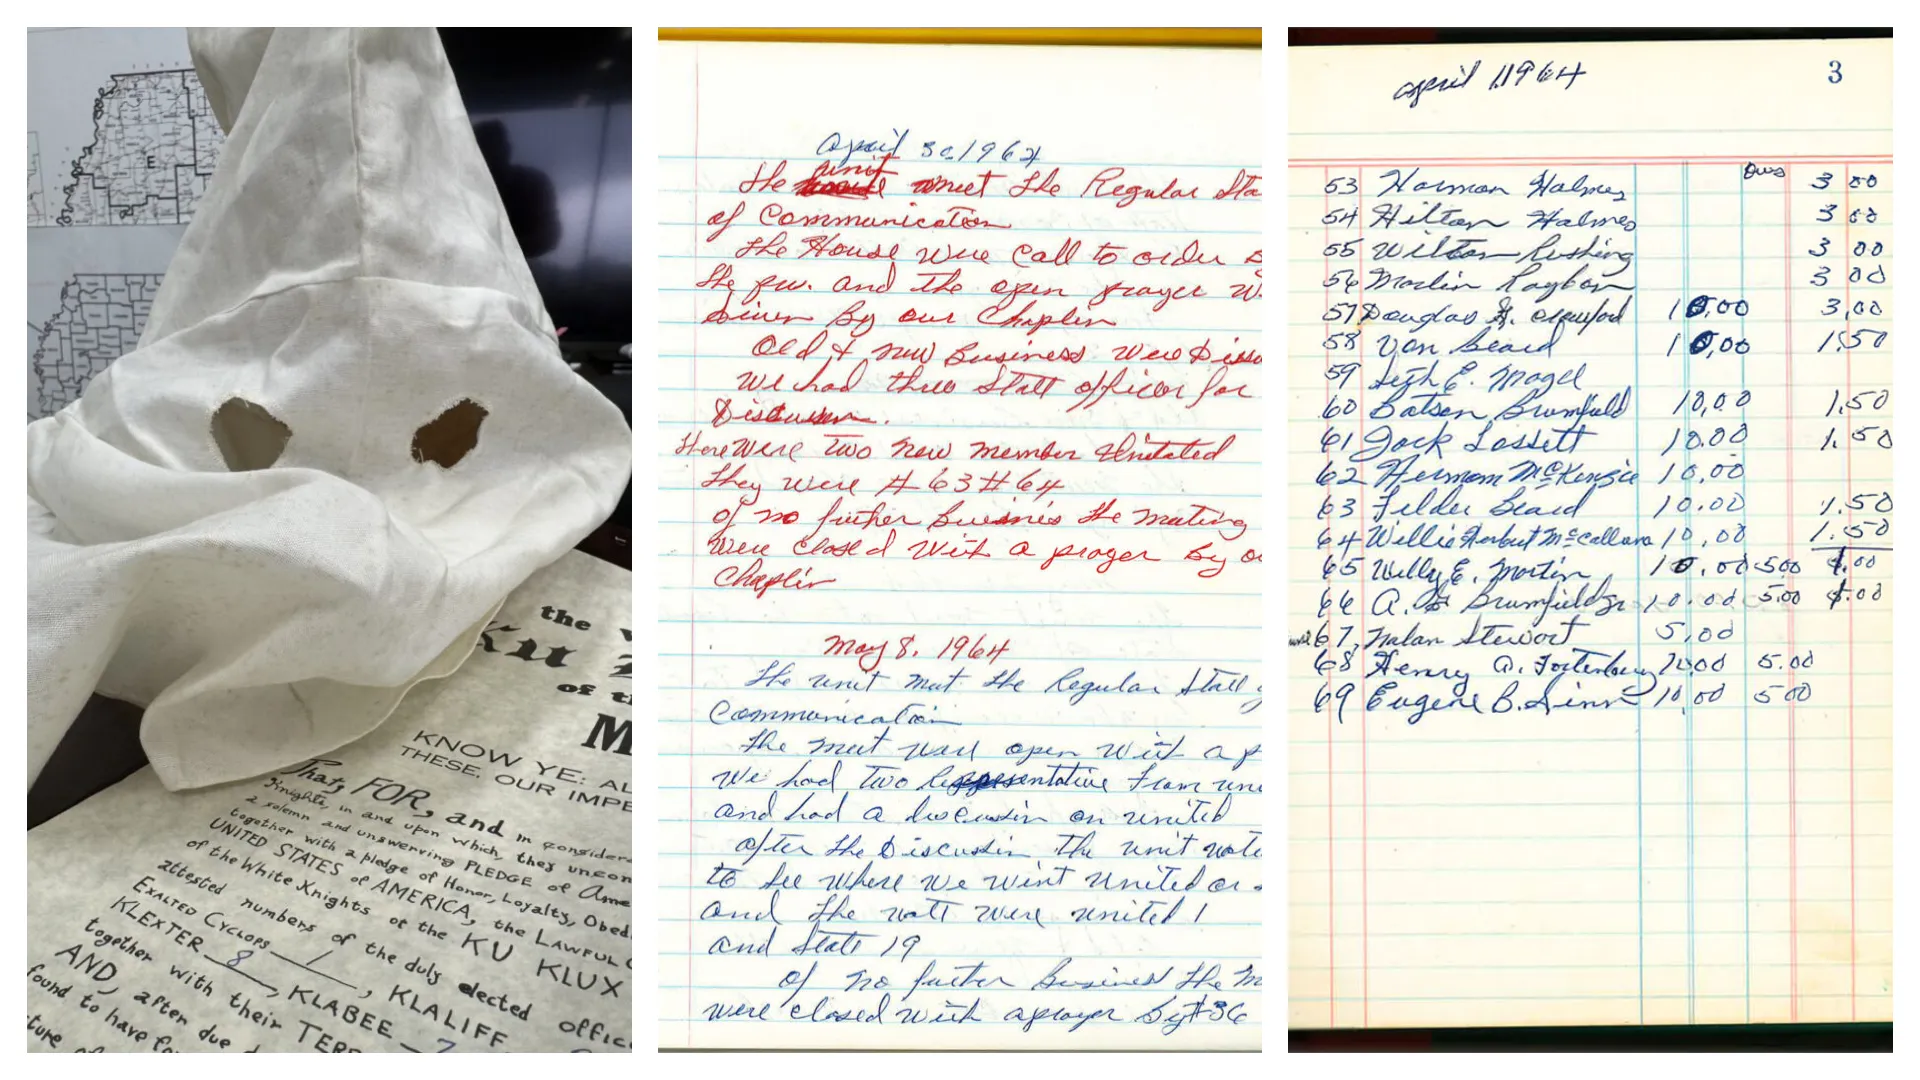 E
the
Ku
of th
M
KNOW YE: AL
THESE, OUR IMPE
That, FOR, and in consider
Knights, in and upon which, they uncon
a solemn and unswerving PLEDGE of Ame
together with a pledge of Honor, Loyalty, Obed
UNITED STATES of AMERICA, the LAWFUL
of the White Knights of the KU KLUX
attested numbers of the duly elected offic
EXALTED CYCLOPS 1, KLALIFF
KLEXTER 8, KLABEE 7
together with their TERR
AND, after due
found to have
ture
April 30 1964
the unit meet the Regular Sta
of Communication
the House were call to order
the and the open prayer
Given By our Chaplin
Old & new Business were Disc
we had three Statt officer for
Discussion.
There were Two new member Unitated
they were # 63 # 64
of no further the meeting
were closed with a prayer By
Chaplin
May 8, 1964
the unit met the Regular Statt
Communication
the meet open with a p
We had two Representative from uni
and had a Discussin on united
after the Discussin the unit vote
to see where we went united or
and the vott were united 1
and State 19
of no further Business the m
were closed with a prayer By #36
April 1, 1964 3
Dues
53 Harman Halmes 3 00
54 Hilton Halmes 3 00
55 Wilton Rushing 3 00
56 Marlin Raybon 3 00
57 Douglas Crawford 10.00 3,00
58 Von Beard 10,00 1.50
59 Seth E. Magel
60 Batson Brumfield 10,00 1.50
61 Jack Lossett 10.00 1.50
62 Hermom McKenzie 10.00
63 Felder Beard 10.00 1.50
64 Willie Herbert McCallum 10.00 1.50
65 Willy E. Martin 10.00 5.00
66 A. Brumfield Jr 10.00 5.00
67, Stewart 5.00
68 Henry A. Fortenbury 10.00 5.00
69 Eugene B. 10,00 5 00